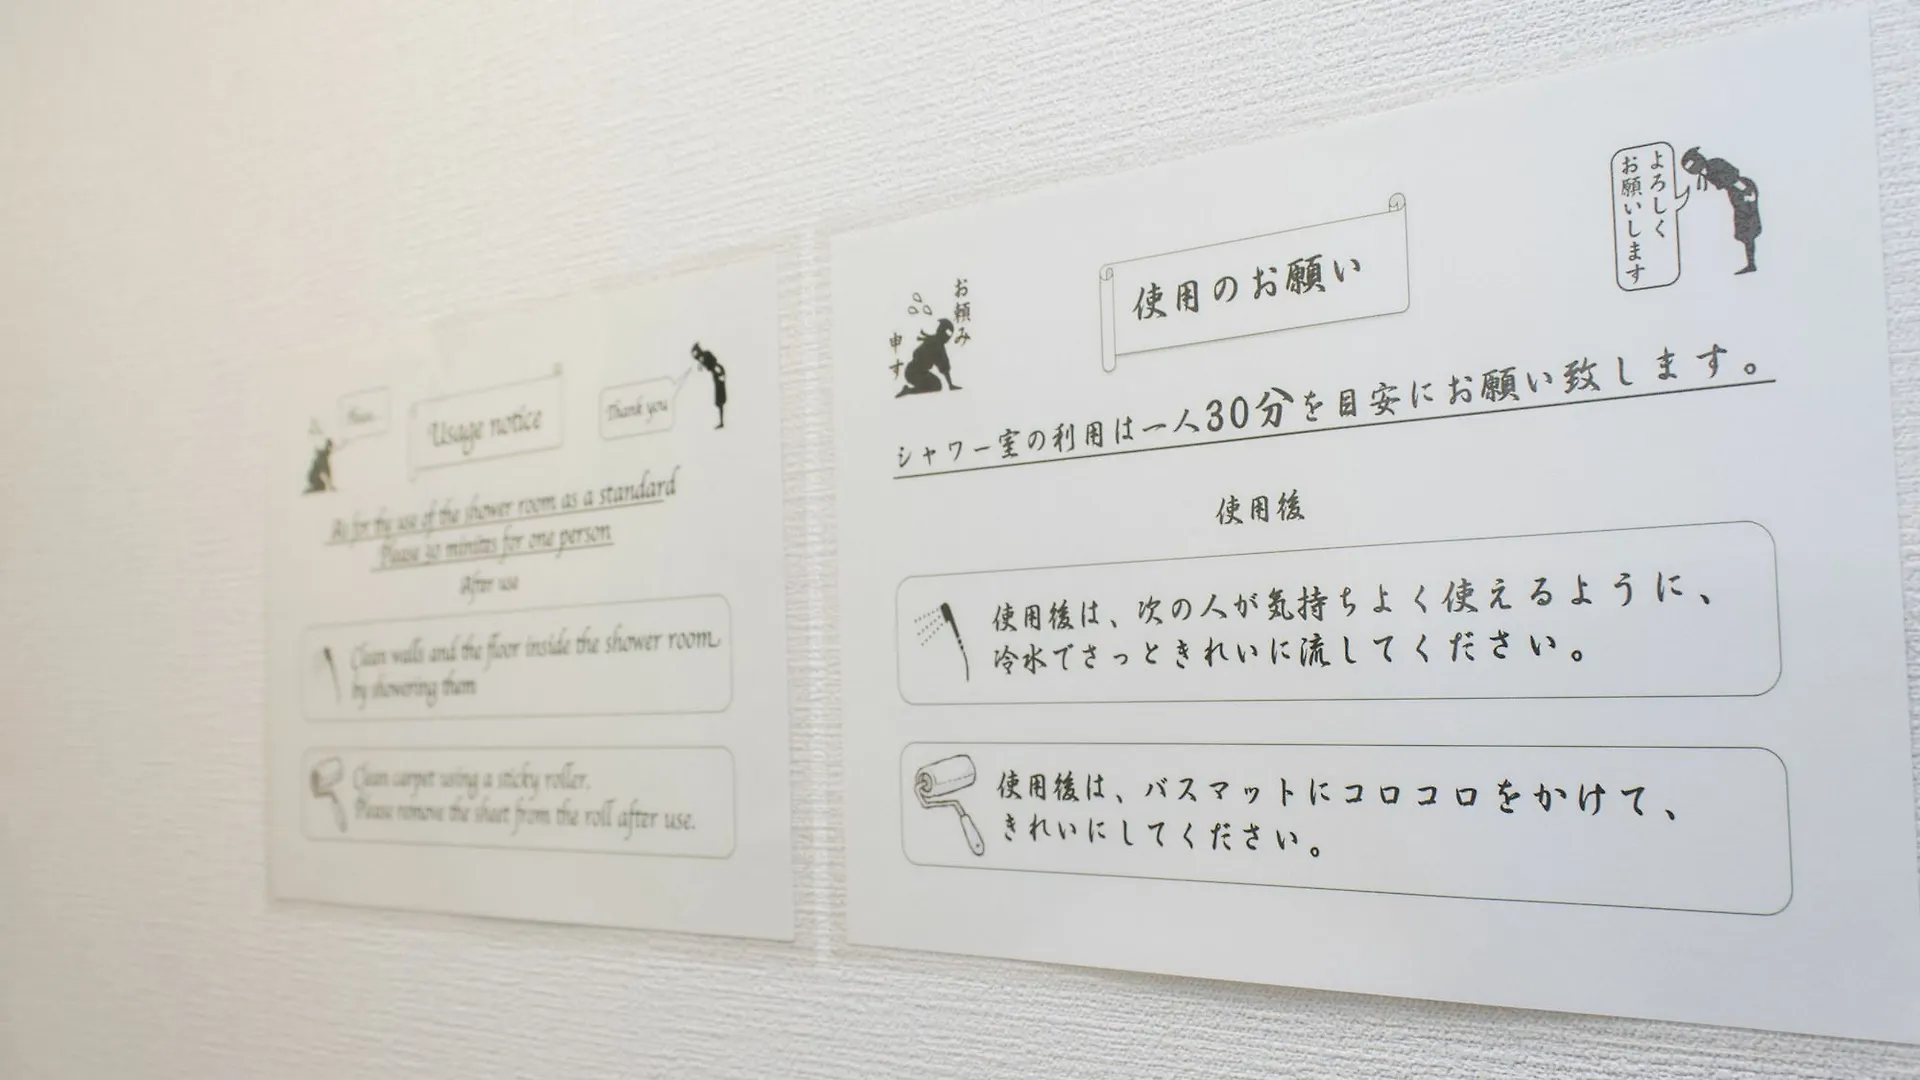 Please
Usage notice
Thank you
As for thy use of the shower room as a standard
Please 30 minites for one person
After use
Clean walls and the floor inside the shower room
by showering them
Clean carpet using a sticky roller.
Please remove the sheet from the roll after use.
お頼み
申す
使用のお願い
よろしく
お願いします
シャワー室の利用は一人30分を目安にお願い致します。
使用後
使用後は、次の人が気持ちよく使えるように、
冷水でさっときれいに流してください。
使用後は、バスマットにコロコロをかけて、
きれいにしてください。